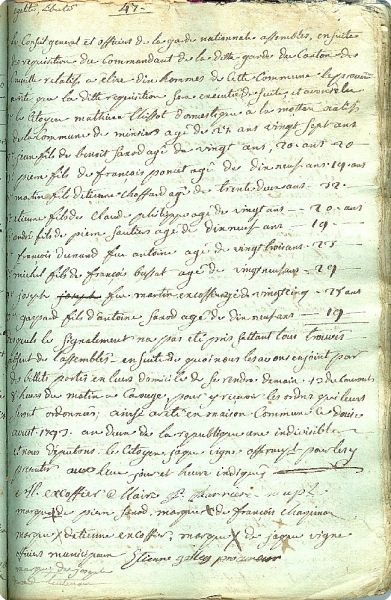 egalité, Liberté 47.
Le Conseil general et officiers de la garde nationnale assemblés, ensuite
de requisition du commandant de la ditte garde du Canton de
relatif a elire dix hommes de cette Commune le procur
arreté que la ditte requisition sera executée de suite, et avons elu
le Citoyen mathieu domestique a la motten natif
de la commune de agé de 27 ans vingt sept ans
jean fils de benoit favod agé de vingt ans, 20 ans 20
pierre fils de francois poncet agé de dix neuf ans 19 ans
martin fils d'etienne Chaffard agé de trente deux ans. 32.
etienne fils de Claude philippe agé de vingt ans — 20. ans
andré fils de pierre saultier agé de dix neuf ans — 19 —
francois Dunand feu antoine agé de vingt trois ans — 23
michel fils de francois bussat agé de vingt neuf ans — 29
joseph joseph feu martin excoffier agé de vingt cinq — 25 ans
gaspard fils d'antoine favod agé de dix neuf ans — 19 —
desquels le signalement n'a pas eté pris s'ettant tous trouvés
absent de l'assemblés ensuite de quoi nous les avons enjoint par
des billets portés en leurs domicile de se rendre demain 13 du courant
8 heures du matin a Carouge, pour y recevoir les ordres qui leurs
seront ordonnés; ainsi arreté en maison Commune ce douze
aoust 1793. an deux de la republique une indivisible
et nous deputons le Citoyen jaque vigne offr pour les y
presenter aux lieu jour et heure indiqués
excoffier maire
marque de pierre favod, marque de francois Chaumon
marque d'etienne excoffier, marque de jaque vigne
officiers municipaux Etienne gallay procureur
marque de joseph